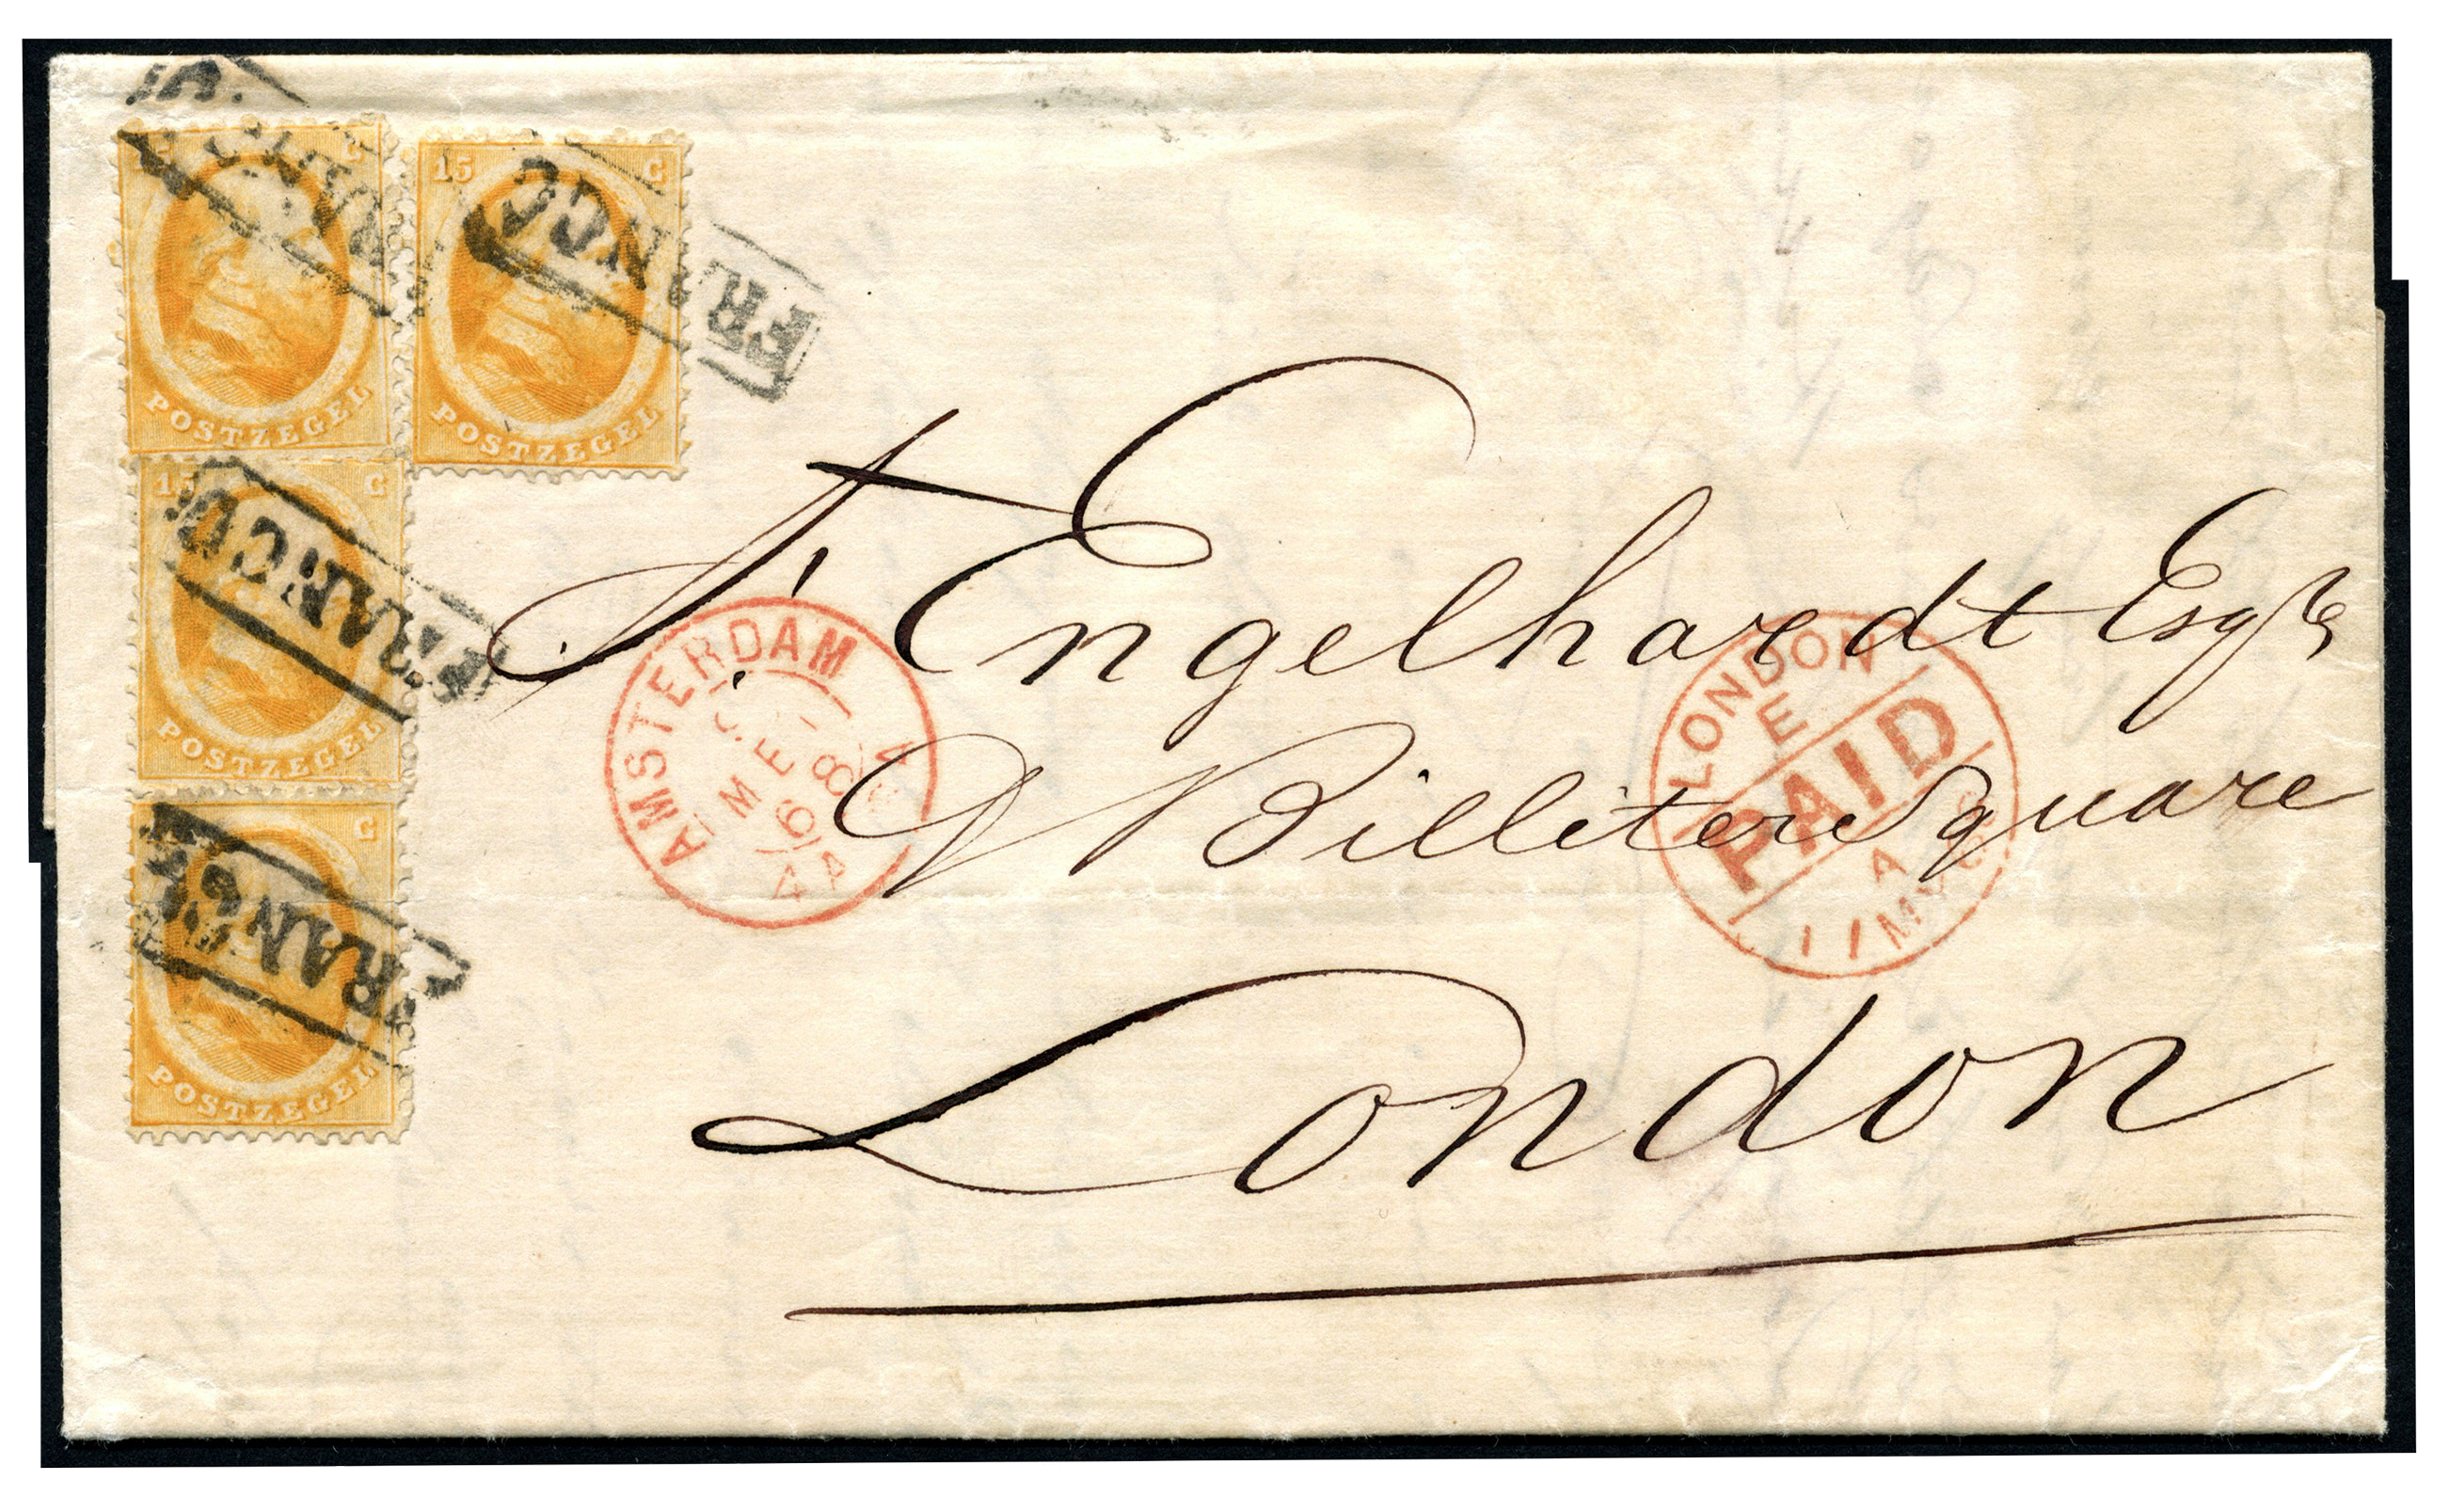 15 C
POSTZEGEL
FRANCO
15 C
POSTZEGEL
FRANCO
15 C
POSTZEGEL
FRANCO
C
POSTZEGEL
FRANCO
A. Engelhardt Esqre
Billiter Square
London
AMSTERDAM
MEI
68
LONDON
E
PAID
A
11 MY 68